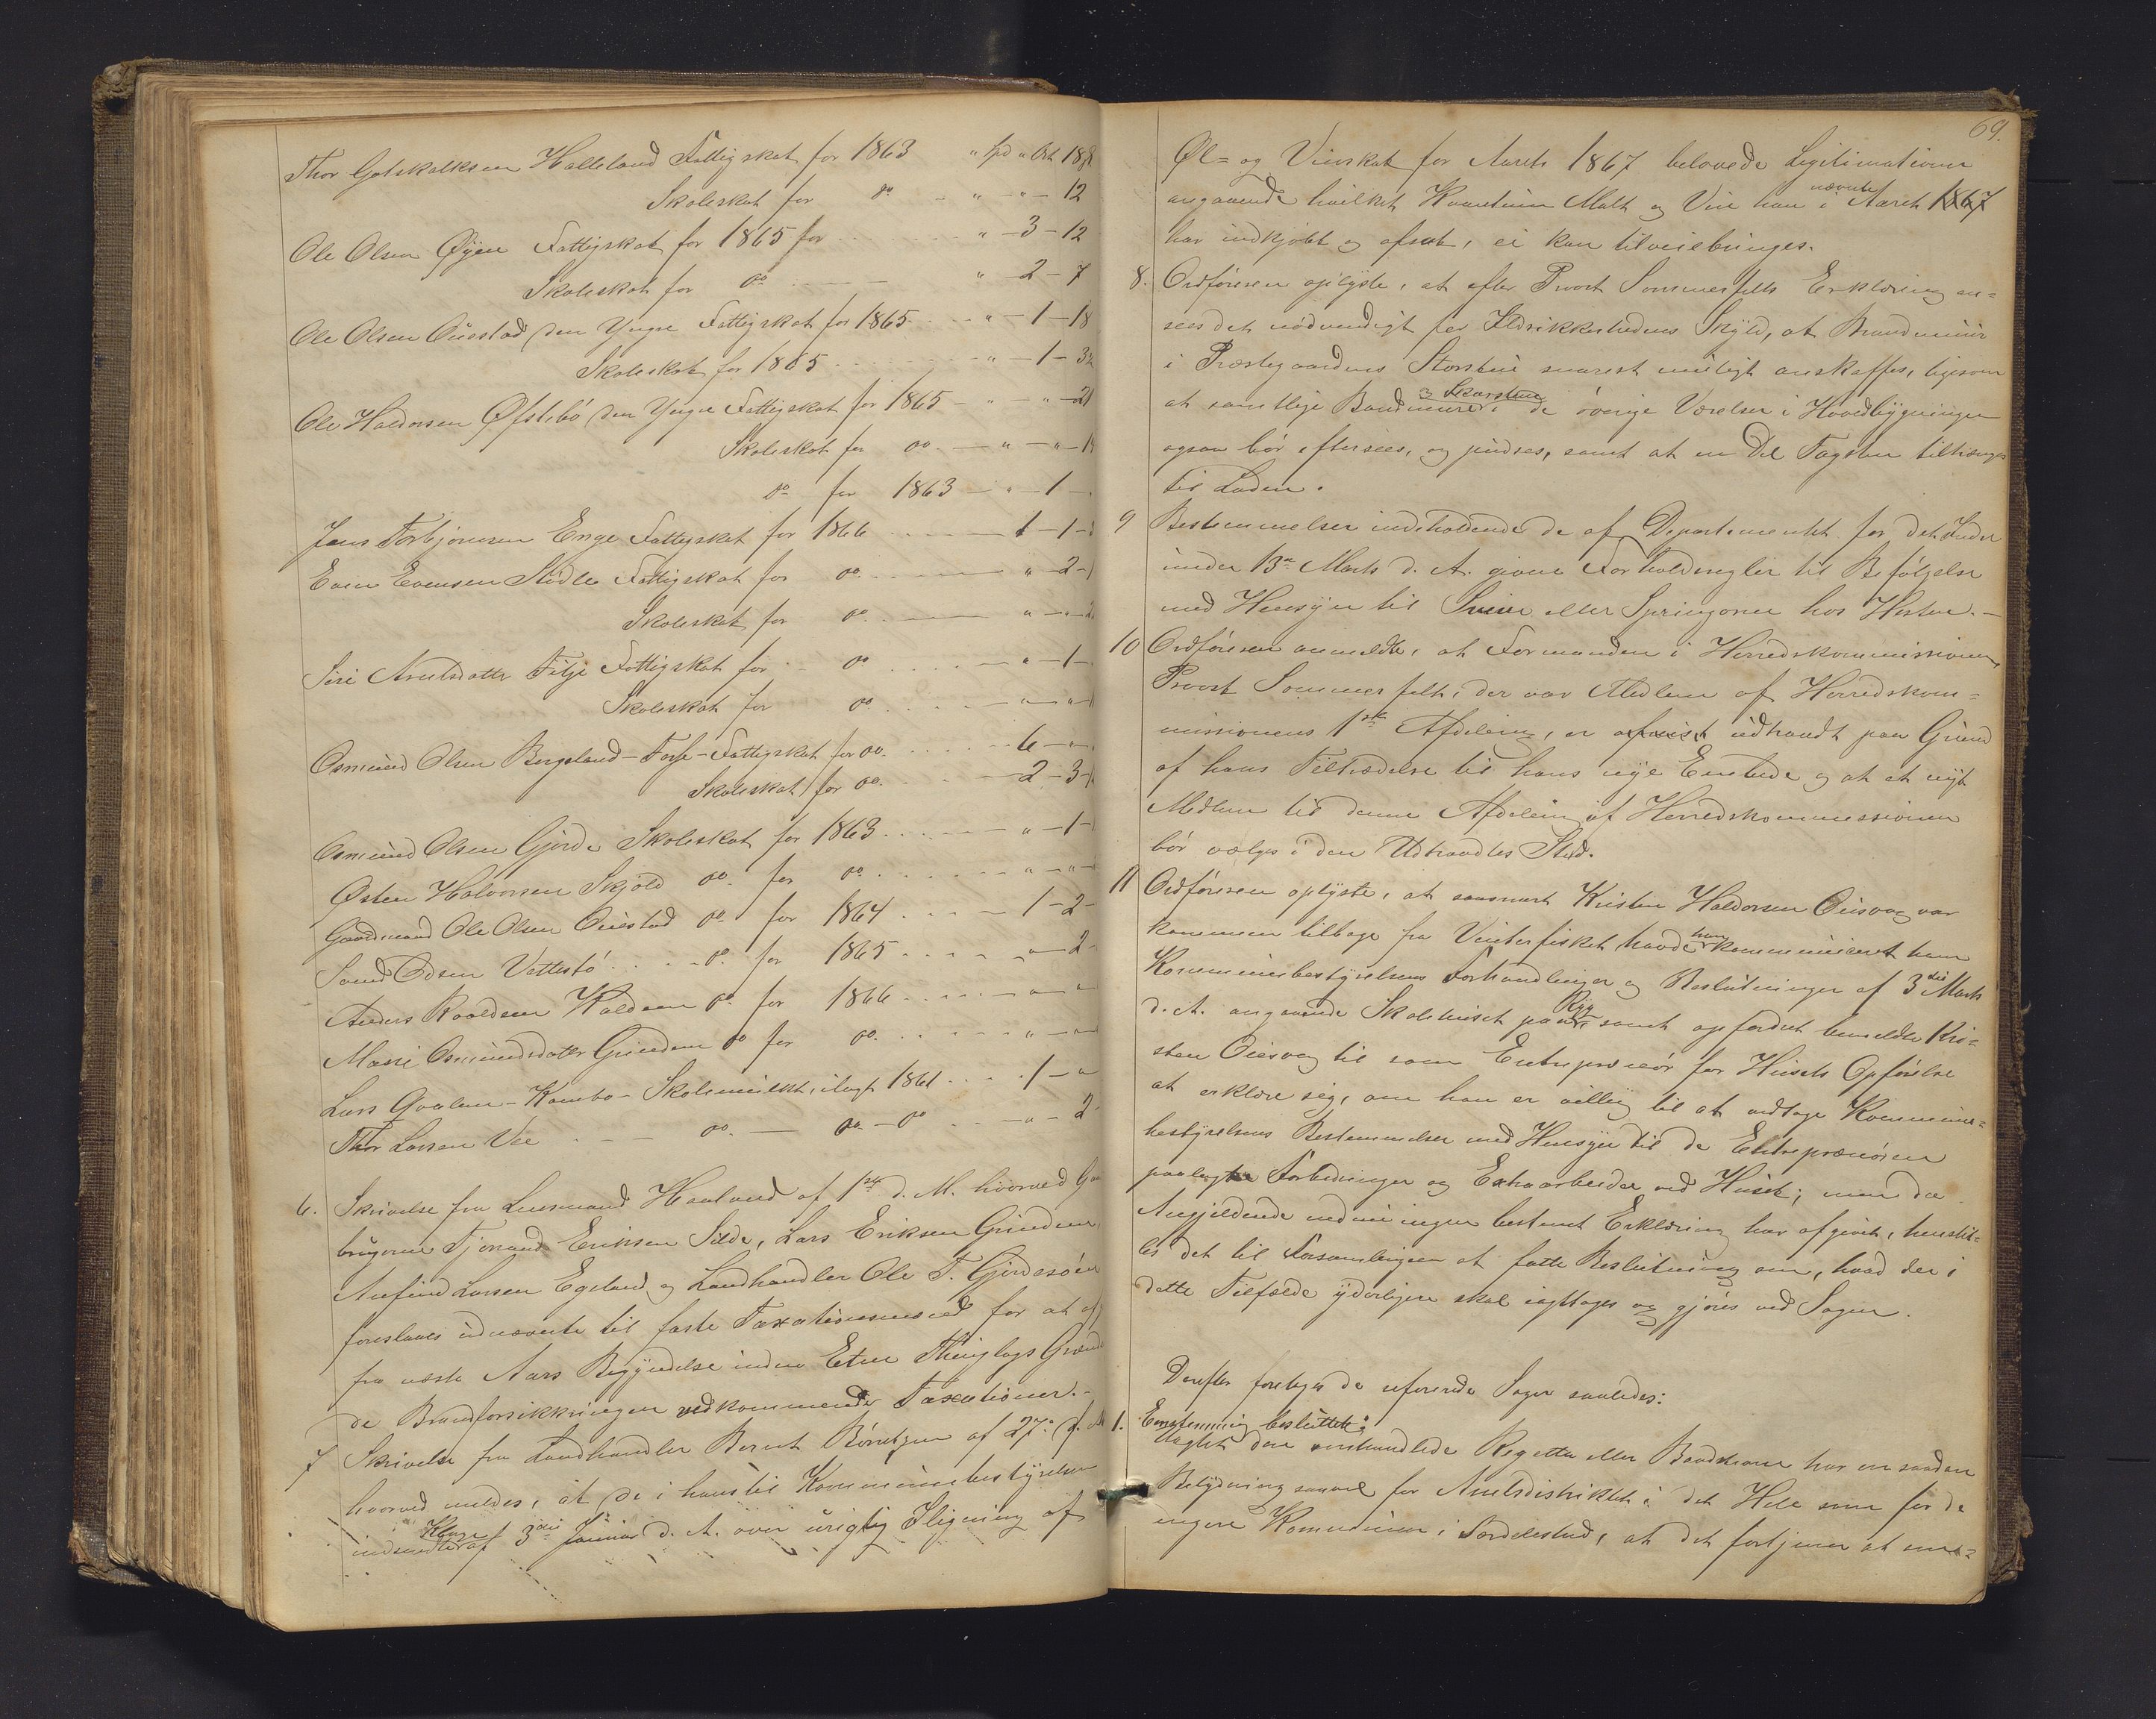 Thor Gotskalksen Halleland Fattigskat for 1863 " Spd " Ort 18 s
Skoleskat for do - " - " - 12
Ole Olsen Øyen Fattigskat for 1865 for " - 3 - 12
Skoleskat for do " 2 - 7
Ole Olsen Øuestad den Yngre Fattigskat for 1865 " - 1 - 18
Skoleskat for 1865 " - 1 - 3
Ole Haldorsen Øfstebø den Yngre Fattigskat for 1865 - " - " - 21
Skoleskat for do. - " - " - 1
do for 1863 - " - 1 -
Jens Torbjørnsen Enge Fattigskat for 1866 1 - 1 -
Even Evensen Stødle Fattigskat for do. " - 2 -
Skoleskat for do. " - " - 2
Siri Arnesdatter Tilje Fattigskat for do " - 1 -
Skoleskat for do. " - " -
Osmund Olsen Bergeland - Fattigskat for do. 6 - " -
Skoleskat for do. 2 - 3 -
Osmund Olsen Gjerde Skoleskat for 1863 " - 1 -
Østen Halvorsen Skjold do. for do. " - " -
Gaardmand Ole Olsen Øuestad do. for 1864 1 - 2 -
Olsen Vattestø do. for 1865 " - 2 -
Anders Roaldsen Haldsen do. for 1866 " - "
Marri Osmundsdatter Grinden do for do. " - "
Lars Qvalen - Kambo - Skolemulkt, ilagt 1861 1 - "
Thor Larsen Vee do. - do - do " - 2
6. Skrivelse fra Lensmand Haaland af 1ste d. M. hvorved Gaard
brugerne Tjerand Eriksen Silde, Lars Eriksen Grinden,
Anfind Larsen Egeland og Landhandler Ole T. Gjerdesøen
foreslaaes udnævnte til faste Taxationsmænd for at
fra næste Aars Begyndelse inden Etne Thinglags Grænd
de Brandforsikkringen vedkommende Taxationer. -
7 Skrivelse fra Landhandler Berent Børretzen af 27de f.
hvorved meldes, at de i hans til Kommunebestyrelsen
indsendte Klage af 3die Januar d. A. over urigtig Iligning af
69.
Øl= og Vinskat for Aaret 1867 belovede Legitimationer
angaaende hvilket Kvantum Malt og Vin han i nævnte Aaret 1867
har indkjøbt og afsat, ei kan tilveiebringes.
8. Ordføreren oplyste, at efter Provst Sommerfelts Erklæring an=
sees det nødvendigt for Ildsikkerhedens Skyld, at Brandmuur
i Præstegaardens Storstue snarest muligt anskaffes, ligesom
at samtlige Brandmure og Skorstene i de øvrige Værelser i Hovedbygningen
ogsaa bør eftersees, og pudses, samt at en Del Tagsten tiltrænges
til Laden.
9 Bestemmelser indeholdende de af Departementet for det Indre
under 13de Marts d. A. givne Forholdsregler til Befølgelse
med Hensyn til Snive eller Springorm hos Hesten. -
10 Ordføreren anmeldte, at Formanden i Herredskommissionen,
Provst Sommerfelt, der var Medlem af Herredskom=
missionens 1ste Afdeling, er udtraadt paa Grund
af hans Tiltrædelse til hans nye Embede og at et nyt
Medlem til denne Afdeling af Herredskommissionen
bør vælges i den Udtraadtes Sted.
11 Ordføreren oplyste, at saasnart Kristen Haldorsen Øusvog var
kommen tilbage fra Vinterfisket, havde han kommuniceret ham
Kommunebestyrelsens Forhandlinger og Beslutninger af 3die Marts
d. A. angaaende Skolehuset paa Ryg samt opfordret bemeldte Kri=
sten Øusvog til som Entreprenør for Husets Opførelse
at erklære sig, om han er villig til at vedtage Kommune=
bestyrelsens Bestemmelser med Hensyn til de Entreprenøren
paalagte Forbedringer og Extraarbeider ved Huset; men da
Angjeldende endnu ingen bestemt Erklæring har afgivet, henstil=
les det til Forsamlingen at fatte Beslutning om, hvad der i
dette Tilfælde yderligere skal iagttages og gjøres ved Sagen.
Derefter foretoges de refererede Sager saaledes:
1. Eenstemmig besluttet:
Uagtet den omhandlede Regatta eller Baadstevne har en saadan
Betydning saavel for Amtsdistriktet i det Hele som for de
Kommuner i Særdeleshed, at det fortjener at